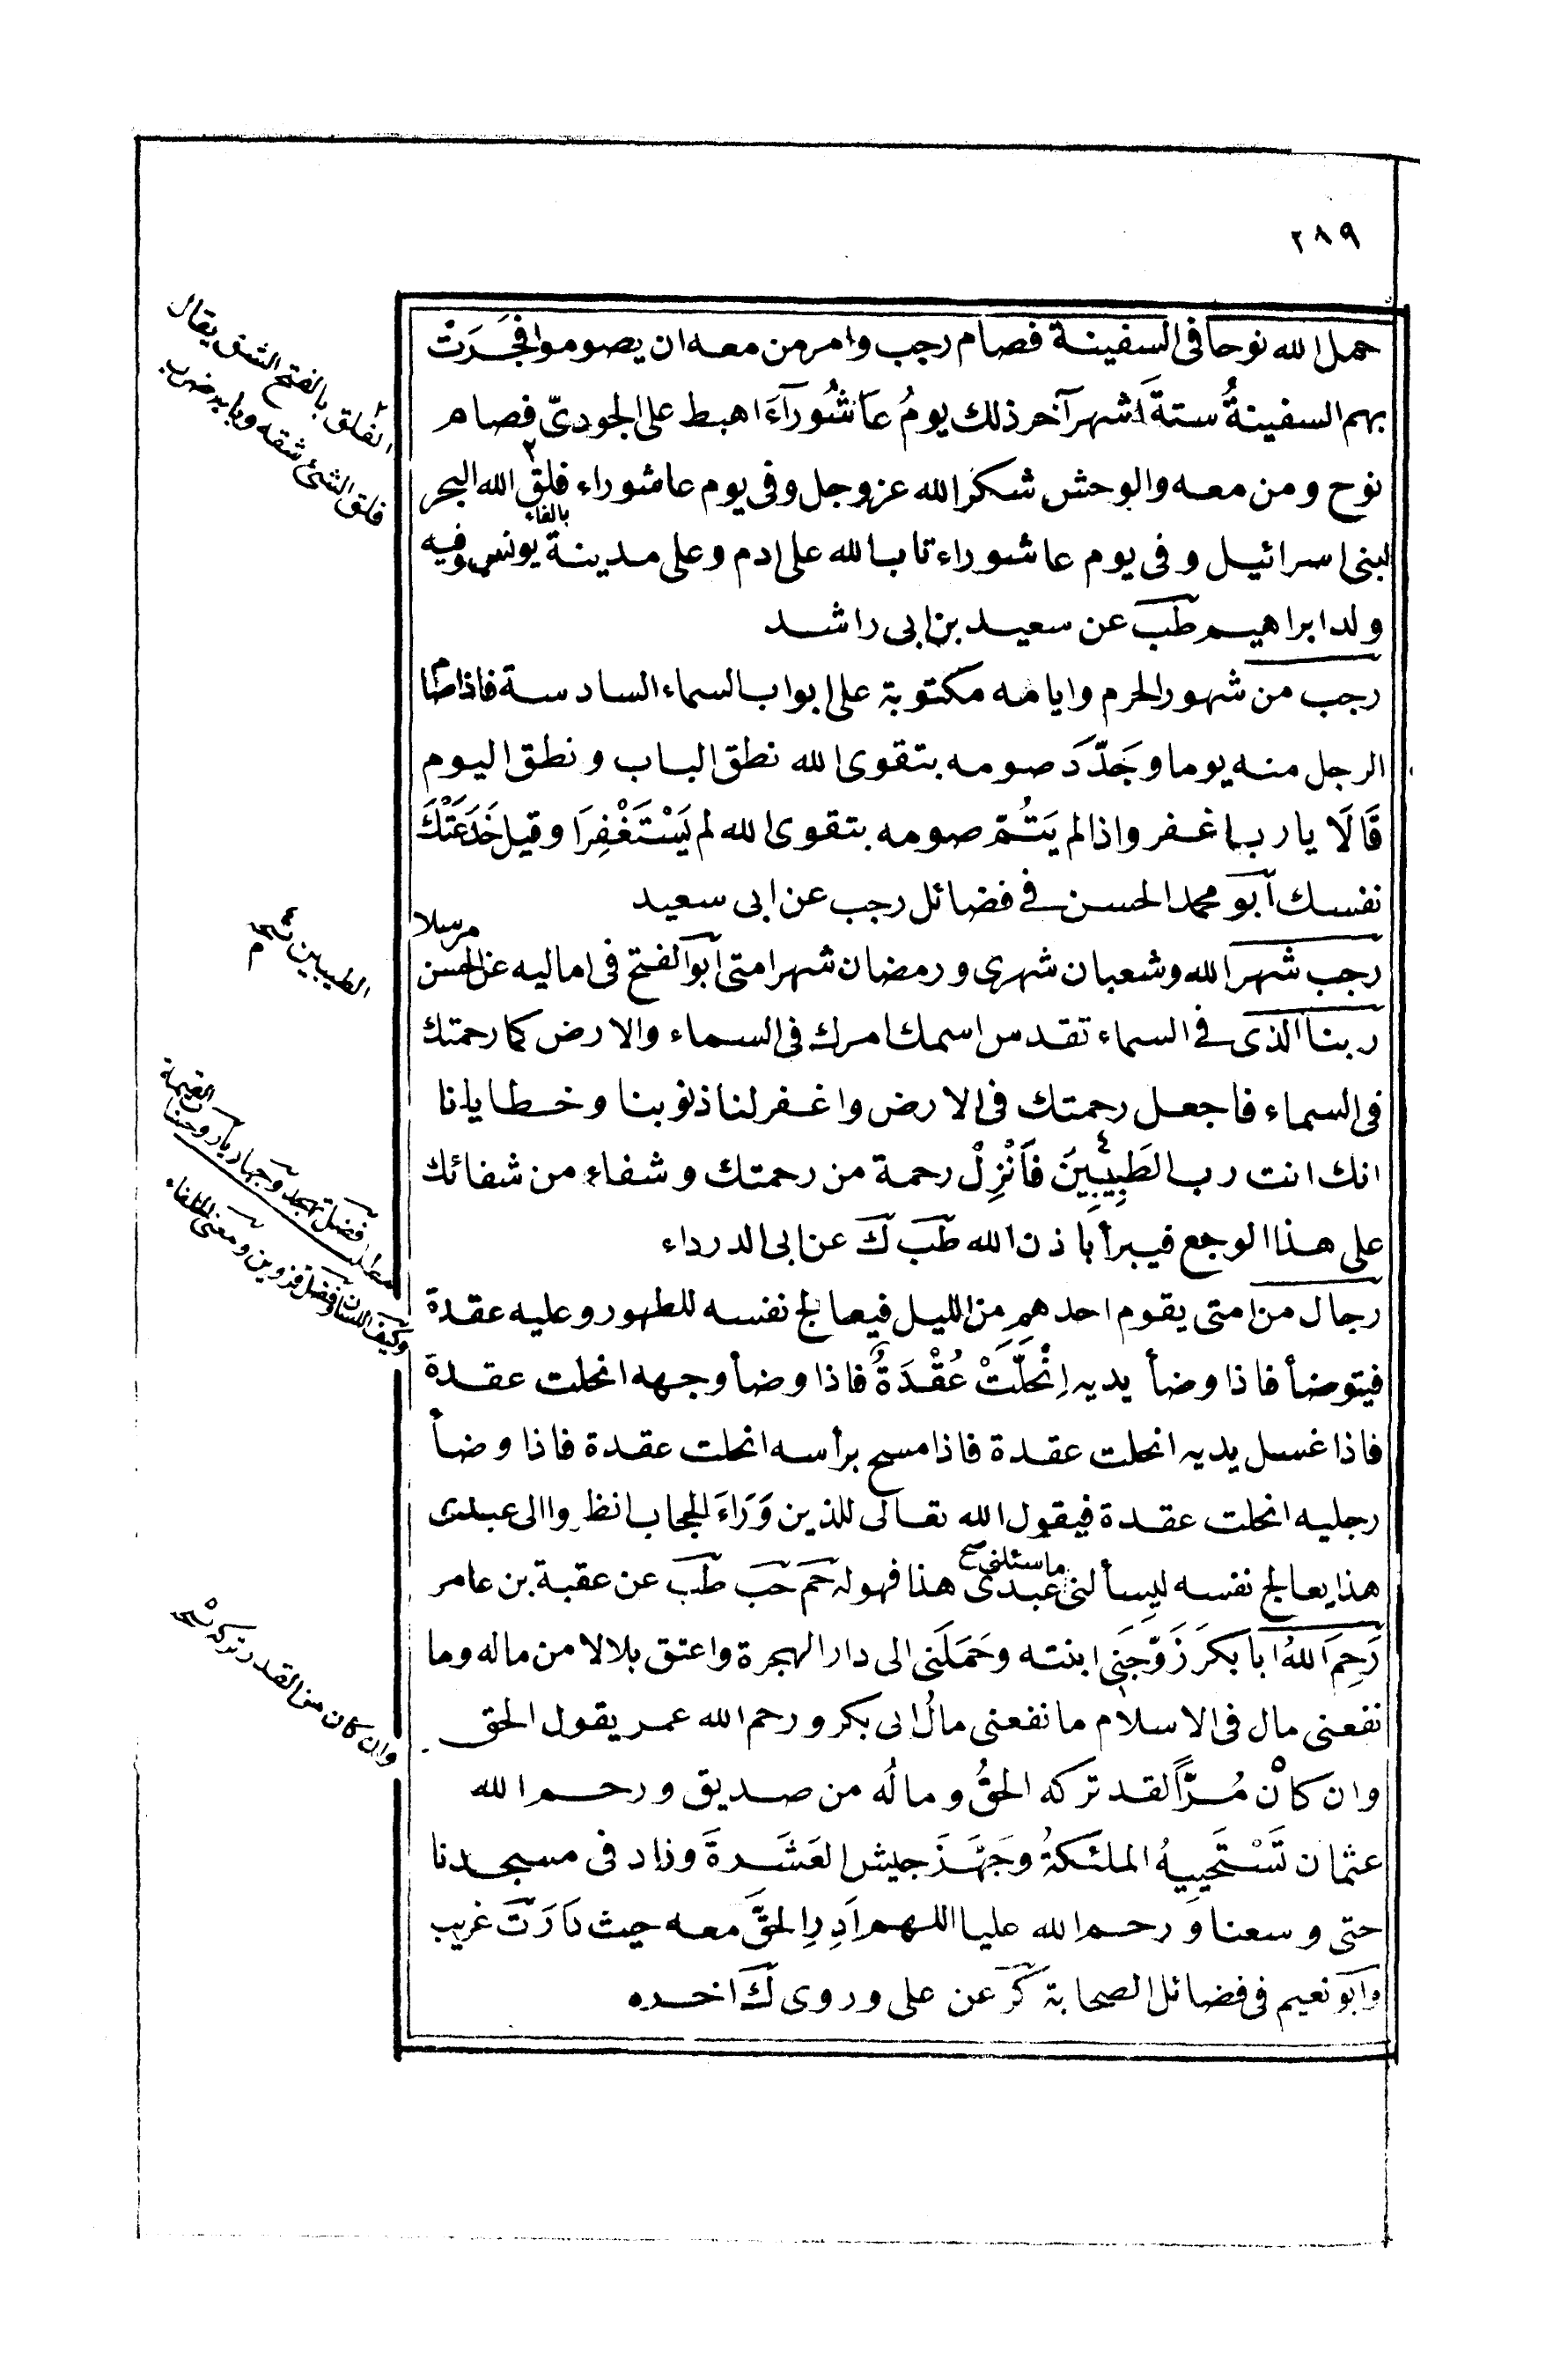 ٢٨٩
حمل الله نوحا فى السفينة فصام رجب وامر من معه ان يصوموا فَجَرَتْ
بهم السفينةُ ستةَ اشهر آخر ذلك يومُ عَاشُورَآءَ اهبط على الجودىّ فصام
نوح ومن معه والوحش شكرا لله عز وجل وفى يوم عاشوراء فلق الله البحر
بالفاء
لبنى اسرائيل وفى يوم عاشوراء تاب الله على ادم وعلى مدينة يونس وفيه
ولد ابراهيم طب عن سعيد بن ابى راشد
رجب من شهور الحرم وايامه مكتوبة على ابواب السماء السادسة فاذا صام
الرجل منه يوما وجَدَّدَ صومه بتقوى الله نطق الباب ونطق اليوم
قَالَا يا رب اغفر واذا لم يَتُمّ صومه بتقوى الله لم يَسْتَغْفِرَا وقيل خَدَعَتْكَ
نفسك ابو محمد الحسن فى فضائل رجب عن ابى سعيد
رجب شهر الله وشعبان شهرى ورمضان شهر امتى ابو الفتح فى اماليه عن الحسن
مرسلا
ربنا الذى فى السماء تقدس اسمك امرك فى السماء والارض كما رحمتك
فى السماء فاجعل رحمتك فى الارض واغفر لنا ذنوبنا وخطايانا
انك انت رب الطَبِيبِينَ فَاَنْزِلْ رحمة من رحمتك وشفاء من شفائك
على هذا الوجع فيبرأ باذن الله طب ك عن ابى الدرداء
رجال من امتى يقوم احدهم من الليل فيعالج نفسه للطهور وعليه عقدة
فيتوضأ فاذا وضأ يديه اِنْحَلَّتْ عُقْدَةٌ فاذا وضأ وجهه انحلت عقدة
فاذا غسل يديه انحلت عقدة فاذا مسح برأسه انحلت عقدة فاذا وضأ
رجليه انحلت عقدة فيقول الله تعالى للذين وَرَاءَ الحجاب انظروا الى عبدى
هذا يعالج نفسه ليسألنى عبدى هذا فهو له حم حب طب عن عقبة بن عامر
ما سئلنى صح
رَحِمَ اللهُ ابا بكرَ زَوَّجَنِى ابنته وحَمَلَنى الى دار الهجرة واعتق بلالا من ماله وما
نفعنى مال فى الاسلام ما نفعنى مالُ ابى بكر ورحم الله عمر يقول الحق
وان كان مُرّاً لقد تركه الحقُّ وما لُه من صديق ورحم الله
عثمان تَسْتَحْيِيهُ الملئكةُ وجَهَّزَ جيش العَشَرةَ وزاد فى مسجدنا
حتى وسعنا ورحم الله عليا اللهم اَدِرِ الحَقَّ معه حيث دَارَ ت غريب
وابو نعيم فى فضائل الصحابة كر عن على وروى ك اخره
٢ الفلق بالفتح الشق يقال
فلق الشئ شقه وبابه ضرب
٤ الطبيبين نسخه م
مطلب فضل تهجد وجهار يار
وكيف اللسان وفضل قزوين ومعنى الخلفاء
وان كان من القدر تركه نسخه